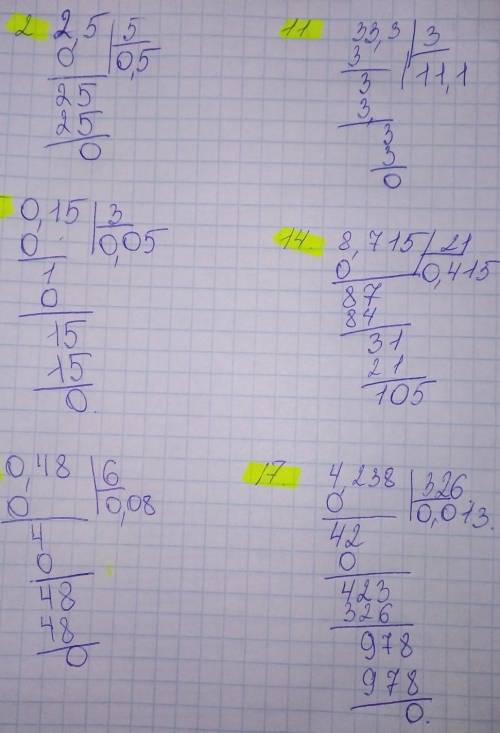 2 2,5 | 5
0 0,5
25
25
0
0,15 | 3
0 0,05
1
0
15
15
0.
0,48 | 6
0 0,08
4
0
48
48
0
11 33,3 | 3
3 11,1
3
3,
3
3
0
14. 8,715 | 21
0 0,415
87
84
31
21
105
17. 4,238 | 326
0 0,013.
42
0
423
326
978
978
0.